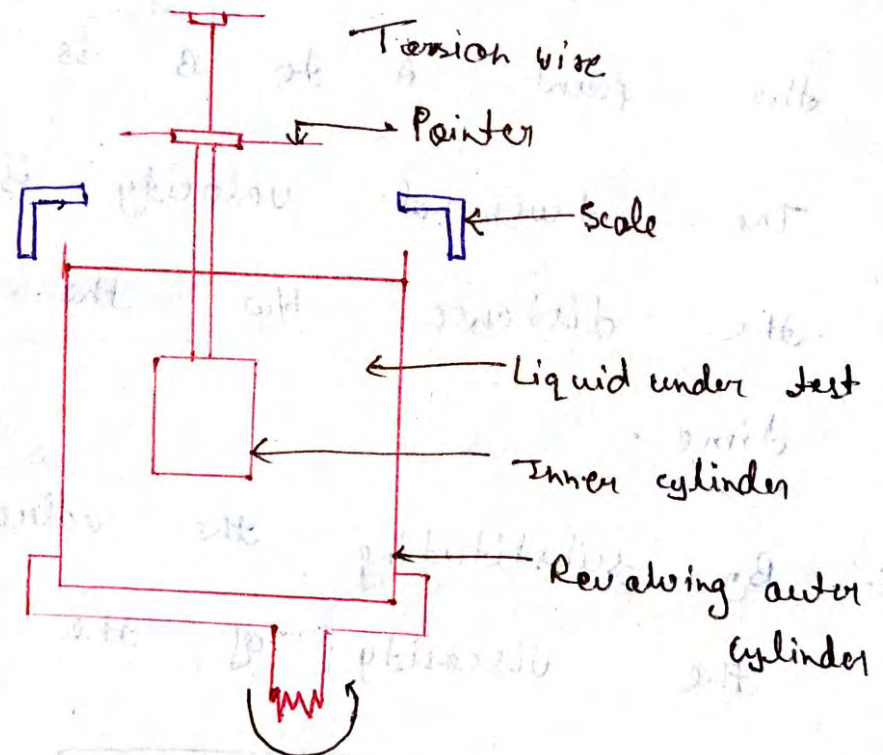 Torsion wire
Pointer
Scale
Liquid under test
Inner cylinder
Revolving outer
cylinder